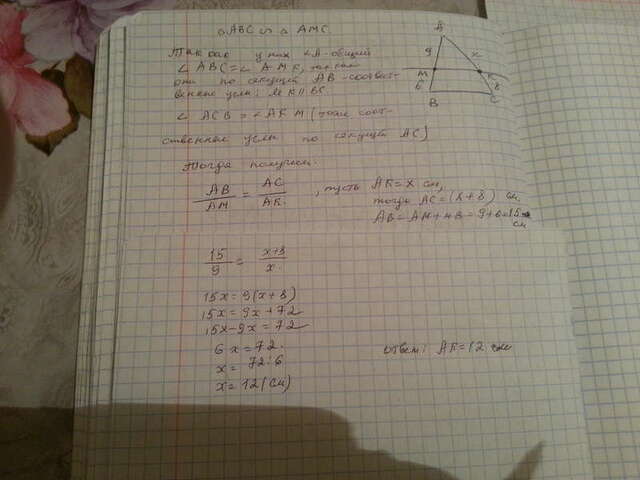 △ABC ∽ △ AMC.
Так как у них ∠A-общий
∠ ABC = ∠ AMK, так как
они по секущей AB - соответ-
венные углы; MK ∥ BC.
∠ ACB = ∠ AKM (тоже соот-
ственные углы по секущей AC)
Тогда получим.
AB/AM = AC/AK. , пусть AK = x см,
тогда AC = (x+8) см.
AB = AM + MB = 9+6=15
см
15/9 = x+8/x.
15x = 9(x+8)
15x = 9x + 72
15x - 9x = 72
6x = 72.
x = 72:6
x = 12 (см)
ответ: AK = 12 см
A
9
x
M
K
6
8
B
C